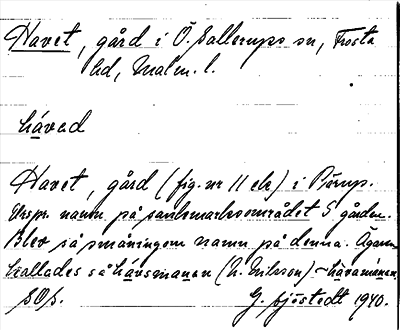 Havet, gård i Ö. Sallerups sn, Frosta
hd, Malm. l.
håvad
Havet, gård (fig. nr 11 etc) i Pärup.
Urspr. namn på sankmarksområdet S gården.
Blev så småningom namn på denna. Ägaren
kallades så håvsmanen (N. Nilsson) - håvamánen
SOfs. G. Sjöstedt 1940.